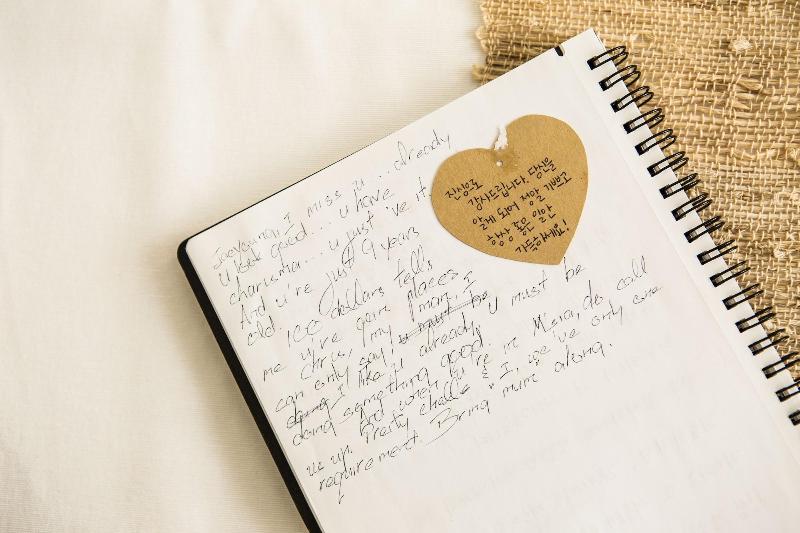 I miss u... already
u look good... u have
charisma... u just 've it.
And u're just 9 years
old. 100 dollars tells
me u've goin places
Chris, my man, I
can only say u must be
I like u already, u must be
doing something good.
And when u're in do call
us up. & I, we've only one
requirement. Bring mum along.
진심으로
감사드립니다. 당신을
알게 되어 정말 기뻐요
항상 좋은 일만
가득하길